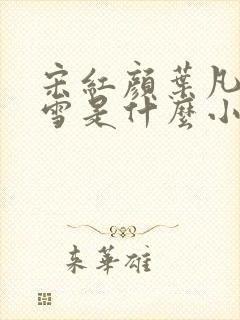 宋紅顏葉凡
雪是什麼小
来華雄